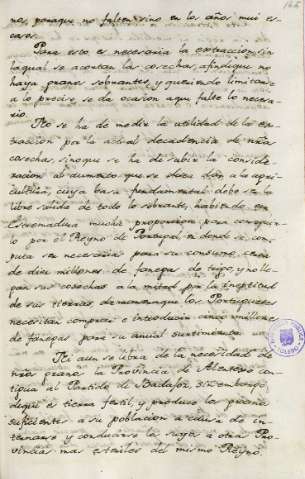 nos, porque no falten sino en los años mui es-
casos.
Para esto es necesaria la extraccion, sin
la qual se acortan las cosechas, afin de que no
haya granos sobrantes, y queriendo limitarse
a lo preciso, se da ocasion a que falte lo necesa-
rio.
No se ha de medir la utilidad de la ex-
traccion por la actual decadencia de nras
cosechas, sino que se ha de estar a la conside-
racion al aumento que se deve dar a la agri-
cultura, cuya basa fundamental debe ser la
libre salida de todo lo sobrante, habiendo en
Estremadura mucha proporcion para conseguir-
lo por el Reyno de Portugal, en donde se com-
puta ser necesarias para su consumo, cerca
de diez millones de fanegas de trigo, y no lle-
gan sus cosechas a la mitad por la ineptitud
de sus tierras, de manera que los Portugueses
necesitan comprar e introducir cinco millones
de fanegas para su anual surtimiento.
Ni aun se libra de la necesidad de
nros granos la Provincia de Alentejo con-
tigua al Partido de Badajoz, sin embargo
de que es tierra fertil, y produce los granos
suficientes a su poblacion
y conducirse la suya a otras Pro-
vincias mas esteriles del mismo Reyno.